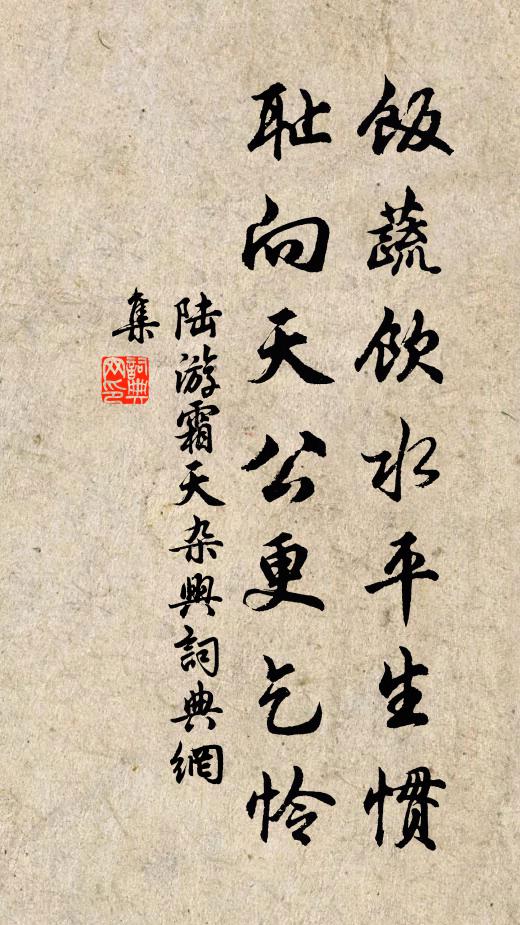 飯蔬飲水平生慣
耻向天公更乞怜
陆游霜天杂興詞典網
集
詞典网印